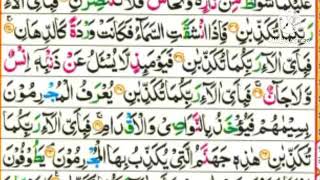 عَلَيْكُمَا شُوَاظٌ مِّنْ نَّارٍ وَّنُحَاسٌ فَلَا تَنْتَصِرٰنِ فَبِاَيِّ اٰلَآءِ
رَبِّكُمَا تُكَذِّبٰنِ فَاِذَا انْشَقَّتِ السَّمَآءُ فَكَانَتْ وَرْدَةً كَالدِّهَانِ
فَبِاَيِّ اٰلَآءِ رَبِّكُمَا تُكَذِّبٰنِ فَيَوْمَئِذٍ لَّا يُسْـَٔلُ عَنْ ذَنْۢبِهٖٓ اِنْسٌ
وَّلَا جَآنٌّ فَبِاَيِّ اٰلَآءِ رَبِّكُمَا تُكَذِّبٰنِ يُعْرَفُ الْمُجْرِمُوْنَ
بِسِيْمٰهُمْ فَيُؤْخَذُ بِالنَّوَاصِيْ وَالْاَقْدَامِ فَبِاَيِّ اٰلَآءِ رَبِّكُمَا
تُكَذِّبٰنِ هٰذِهٖ جَهَنَّمُ الَّتِيْ يُكَذِّبُ بِهَا الْمُجْرِمُوْنَ يَطُوْفُوْنَ